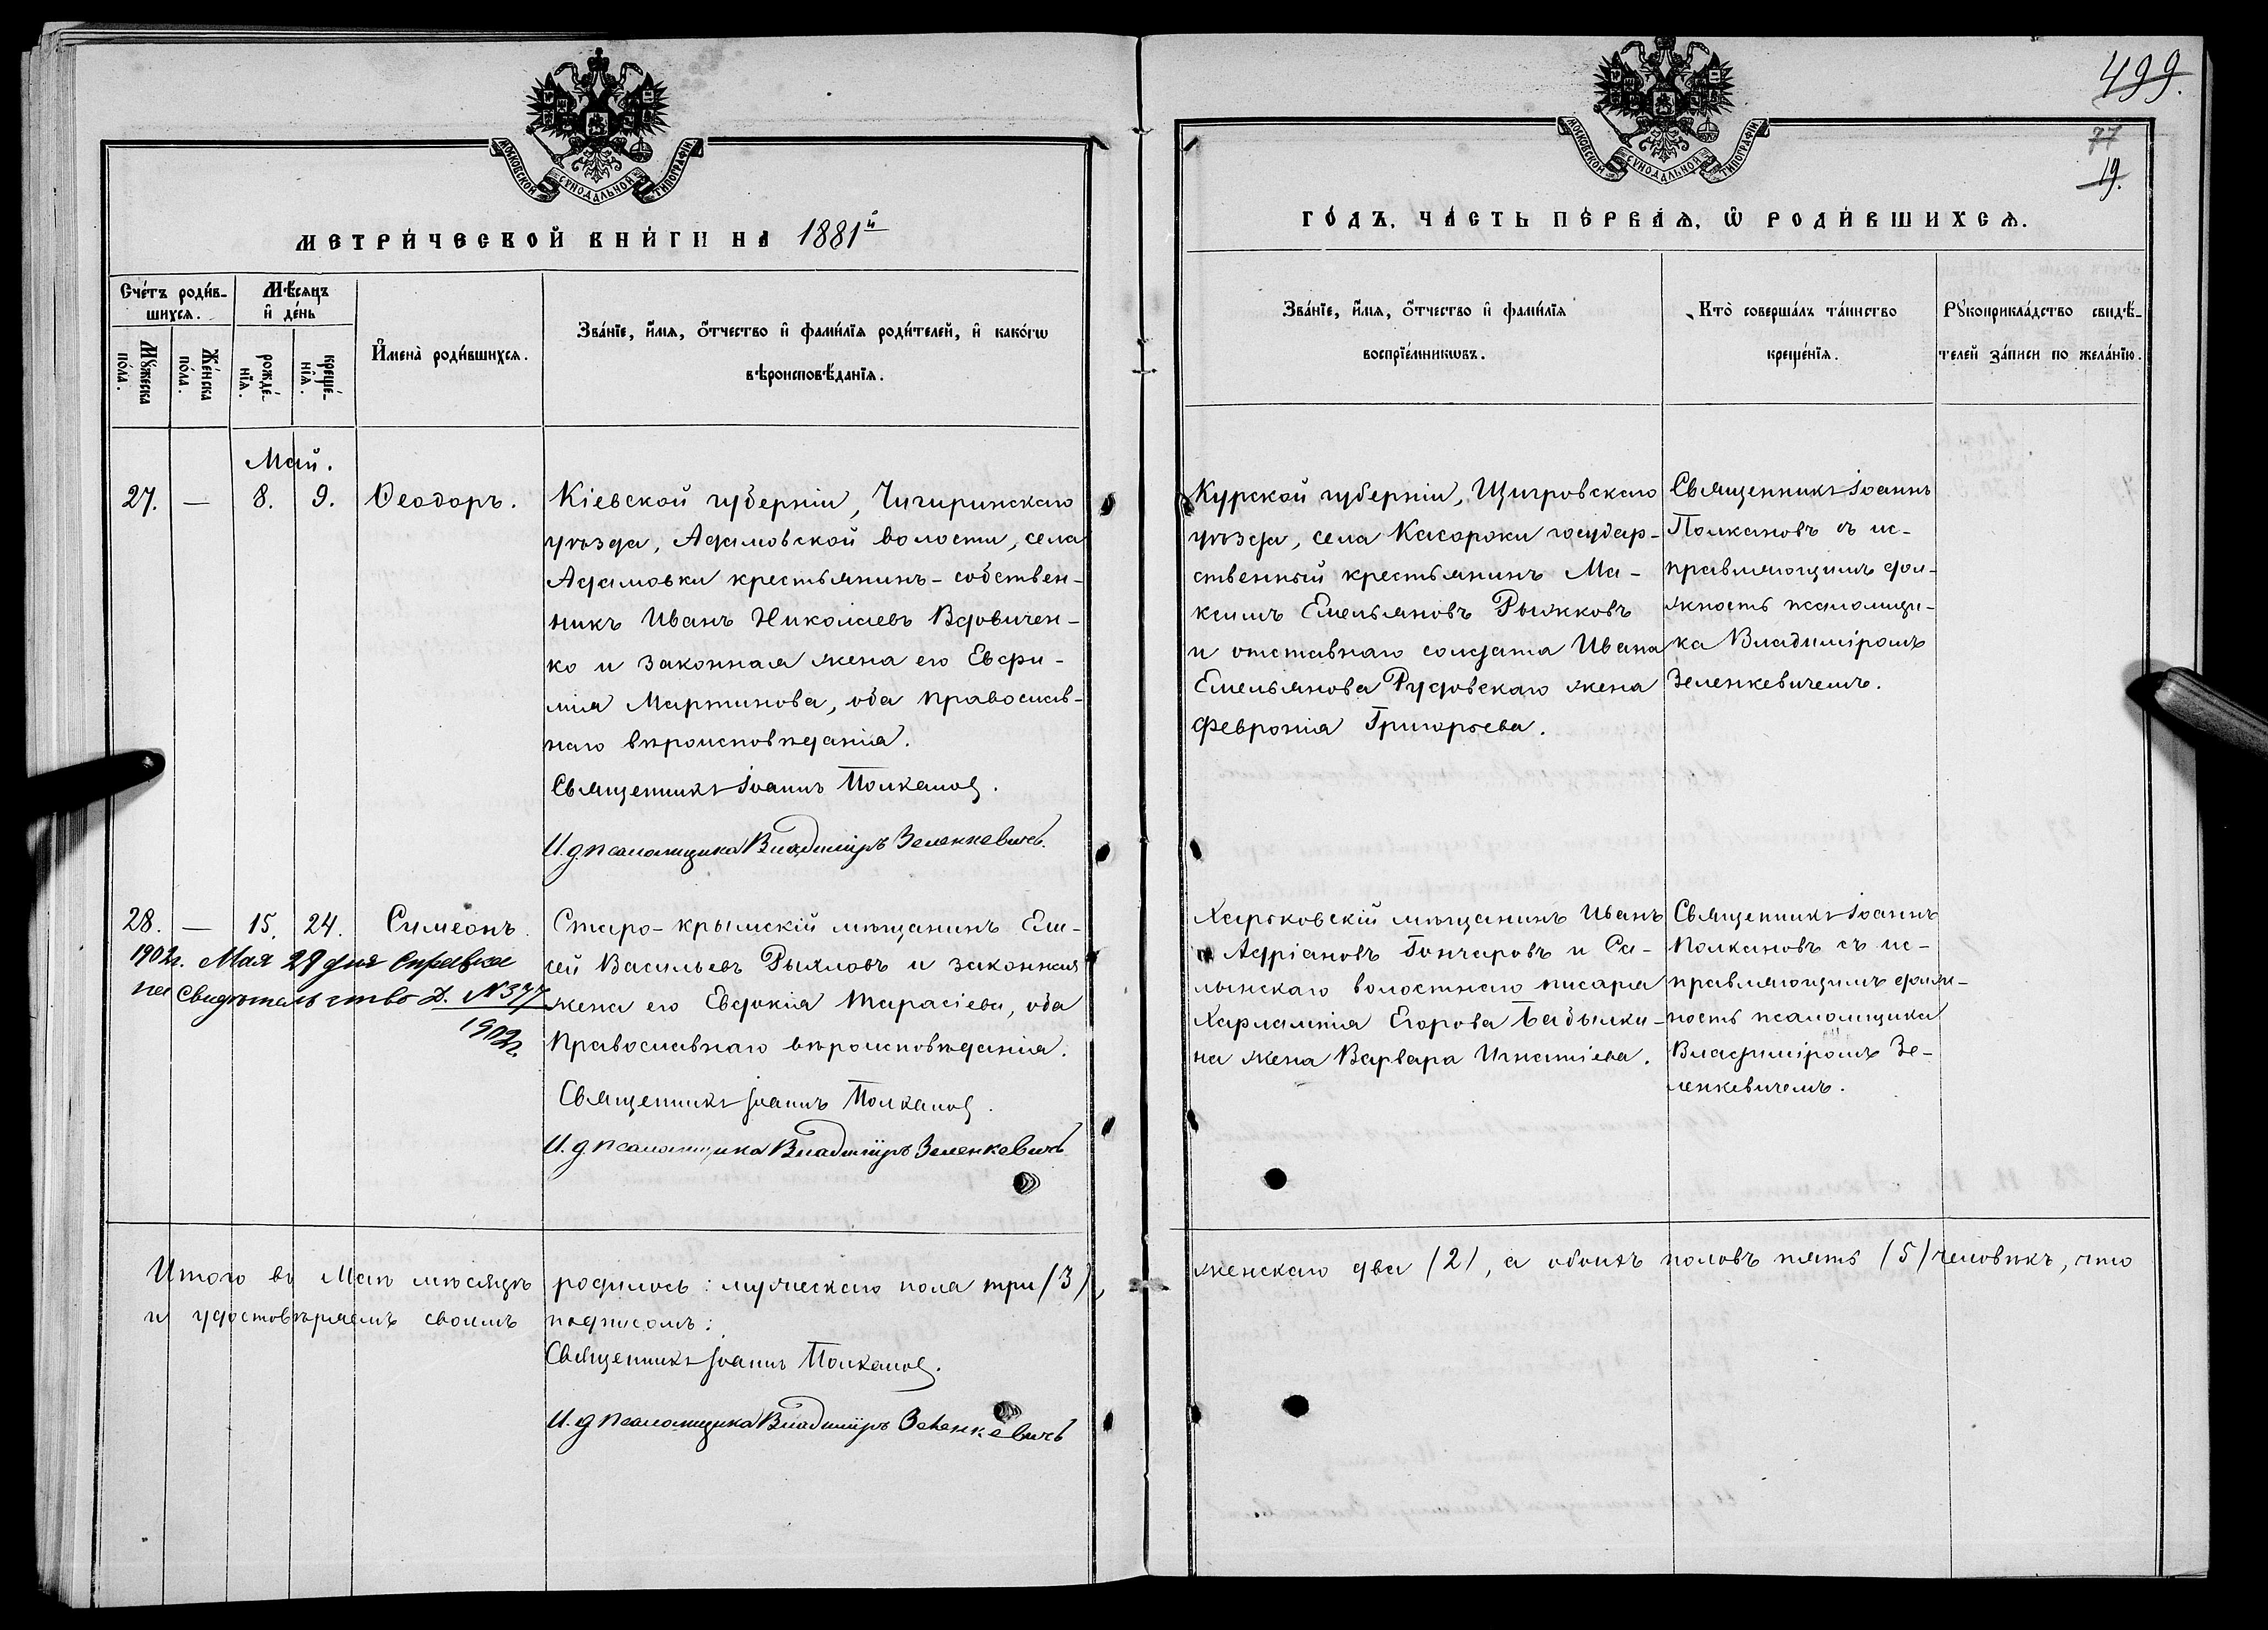 499.
77
19.
МОСКОВСКОЙ СѴНОДАЛЬНОЙ ТИПОГРАФІИ
МЕТРИ́ЧЕСКОЙ КНИ́ГИ НА 1881й
Сче́тъ роди́в-
шихсѧ.
Мѣ́сѧцъ
и҆ де́нь
Мꙋ́жеска
по́ла.
Же́нска
по́ла.
рожде́-
нїѧ.
креще́-
нїѧ.
И҆мена̀ роди́вшихсѧ.
Зва́нїе, и҆́мѧ, ѻ҆́тчество и҆ фами́лїѧ роди́телей, и҆ како́гѡ
вѣроисповѣ́данїѧ.
Май.
27. — 8. 9. Ѳеодоръ.
Кіевской губерніи, Чигиринскаго
уѣзда, Адамовской волости, села
Адамовки крестьянинъ-собствен-
никъ Иванъ Николаевъ Вдовичен-
ко и законная жена его Евфи-
мія Мартинова, оба православ-
наго вѣроисповѣданія.
Священникъ Іоаннъ Полкановъ.
И. д. псаломщика Владиміръ Зеленкевичъ.
28. — 15. 24. Симеонъ.
1902г. Мая 28 дня Справка
на свидѣтельство Д. № 377
1902г.
Старо-крымскій мѣщанинъ Ели-
сей Васильевъ Рыхловъ и законная
жена его Евдокія Тарасіева, оба
Православнаго вѣроисповѣданія.
Священникъ Іоаннъ Полкановъ.
И. д. псаломщика Владиміръ Зеленкевичъ
Итого въ Маѣ мѣсяцѣ родилось: мужескаго пола три (3),
и удостовѣряемъ своимъ подписомъ:
Священникъ Іоаннъ Полкановъ.
И. д. псаломщика Владиміръ Зеленкевичъ
МОСКОВСКОЙ СѴНОДАЛЬНОЙ ТИПОГРАФІИ
ГО́ДЪ, ЧА́СТЬ ПЕ́РВАѦ, Ѡ҆ РОДИ́ВШИХСѦ.
Зва́нїе, и҆́мѧ, ѻ҆́тчество и҆ фами́лїѧ
воспрїе́мникѡвъ.
Кто̀ соверша́лъ та́инство
креще́нїѧ.
Рꙋкоприкла́дство свидѣ́-
телей за́писи по жела́нїю.
Курской губерніи, Щигровскаго
уѣзда, села Касоржи государ-
ственный крестьянинъ Ма-
ксимъ Емельяновъ Рыжковъ
и отставнаго солдата Ивана
Емельянова Рудовскаго жена
Февронія Григорьева.
Священникъ Іоаннъ
Полкановъ съ ис-
правляющимъ дол-
жность псаломщи-
ка Владиміромъ
Зеленкевичемъ.
Харьковскій мѣщанинъ Иванъ
Адріановъ Гончаровъ и Са-
лынскаго волостнаго писаря
Харлампія Егорова Бабылки-
на жена Варвара Игнатіева.
Священникъ Іоаннъ
Полкановъ съ ис-
правляющимъ долж-
ность псаломщика
Владиміромъ Зе-
ленкевичемъ.
женскаго два (2), а обоихъ половъ пять (5) человѣкъ, что